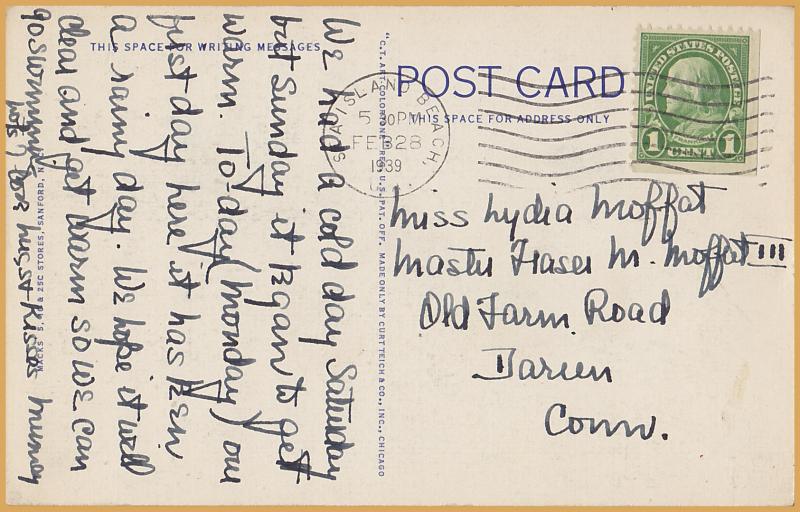 THIS SPACE FOR WRITING MESSAGES
We had a cold day Saturday
but Sunday it began to get
warm. To-day (Monday) our
first day here it has been
a rainy day. We hope it will
clear and get warm so we can
go swimming
lots love hugs & kisses
MACKS 5, & 25C STORES, SANFORD, N.
"C.T. ART-COLORTONE" REG. U.S. PAT. OFF. MADE ONLY BY CURT TEICH & CO., INC., CHICAGO
POST CARD
THIS SPACE FOR ADDRESS ONLY
SEA ISLAND BEACH
5 PM
FEB 28
1939
UNITED STATES POSTAGE
FRANKLIN
1 CENT 1
Miss Lydia Moffat
Master Fraser M. Moffat III
Old Farm Road
Darien
Conn.